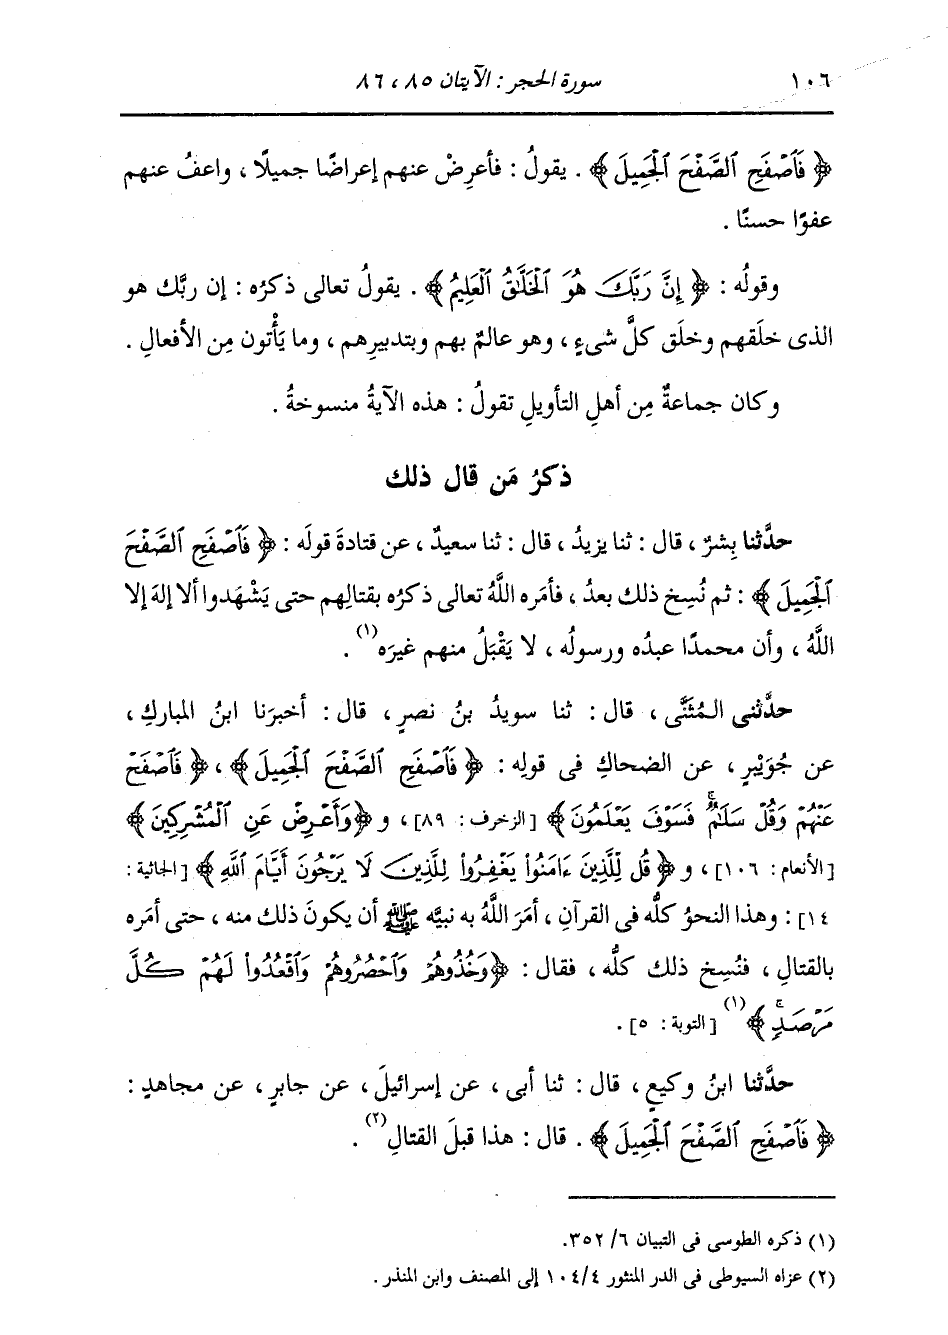 ١٠٦ سورة الحجر : الآيتان ٨٥ ، ٨٦
﴿ فَٱصْفَحِ ٱلصَّفْحَ ٱلْجَمِيلَ ﴾ . يقولُ : فأعرِضْ عنهم إعراضًا جميلًا ، واعفُ عنهم
عفوًا حسنًا .
وقولُه : ﴿ إِنَّ رَبَّكَ هُوَ ٱلْخَلَّٰقُ ٱلْعَلِيمُ ﴾ . يقولُ تعالى ذكرُه : إن ربَّك هو
الذى خلَقهم وخلَق كلَّ شىءٍ ، وهو عالمٌ بهم وبتدبيرِهم ، وما يَأْتون مِن الأفعالِ .
وكان جماعةٌ مِن أهلِ التأويلِ تقولُ : هذه الآيةُ منسوخةُ .
ذكرُ مَن قال ذلك
حدَّثنا بِشرٌ ، قال : ثنا يزيدُ ، قال : ثنا سعيدٌ ، عن قتادةَ قولَه : ﴿ فَٱصْفَحِ ٱلصَّفْحَ
ٱلْجَمِيلَ ﴾ : ثم نُسِخ ذلك بعدُ ، فأمَره اللَّهُ تعالى ذكرُه بقتالِهم حتى يَشْهَدوا ألا إلهَ إلا
اللَّهُ ، وأن محمدًا عبدُه ورسولُه ، لا يَقْبَلُ منهم غيرَه(١) .
حدَّثنى المُثَنَّى ، قال : ثنا سويدُ بنُ نصرٍ ، قال : أخبرَنا ابنُ المباركِ ،
عن جُوَيْبرٍ ، عن الضحاكِ فى قولِه : ﴿ فَٱصْفَحِ ٱلصَّفْحَ ٱلْجَمِيلَ ﴾ ، ﴿ فَٱصْفَحْ
عَنْهُمْ وَقُلْ سَلَٰمٌ ۚ فَسَوْفَ يَعْلَمُونَ ﴾ [الزخرف : ٨٩] ، و ﴿ وَأَعْرِضْ عَنِ ٱلْمُشْرِكِينَ ﴾
[الأنعام : ١٠٦] ، و ﴿ قُل لِّلَّذِينَ ءَامَنُوا۟ يَغْفِرُوا۟ لِلَّذِينَ لَا يَرْجُونَ أَيَّامَ ٱللَّهِ ﴾ [الجاثية :
١٤] : وهذا النحوُ كلُّه فى القرآنِ ، أمَرَ اللَّهُ به نبيَّه ﷺ أن يكونَ ذلك منه ، حتى أمَره
بالقتالِ ، فنُسِخ ذلك كلُّه ، فقال : ﴿ وَخُذُوهُمْ وَٱحْصُرُوهُمْ وَٱقْعُدُوا۟ لَهُمْ كُلَّ
مَرْصَدٍ ۚ ﴾(١) [التوبة : ٥] .
حدَّثنا ابنُ وكيعٍ ، قال : ثنا أبى ، عن إسرائيلَ ، عن جابرٍ ، عن مجاهدٍ :
﴿ فَٱصْفَحِ ٱلصَّفْحَ ٱلْجَمِيلَ ﴾ . قال : هذا قبلَ القتالِ(٢) .
(١) ذكره الطوسى فى التبيان ٦/ ٣٥٢.
(٢) عزاه السيوطى فى الدر المنثور ١٠٤/٤ إلى المصنف وابن المنذر .